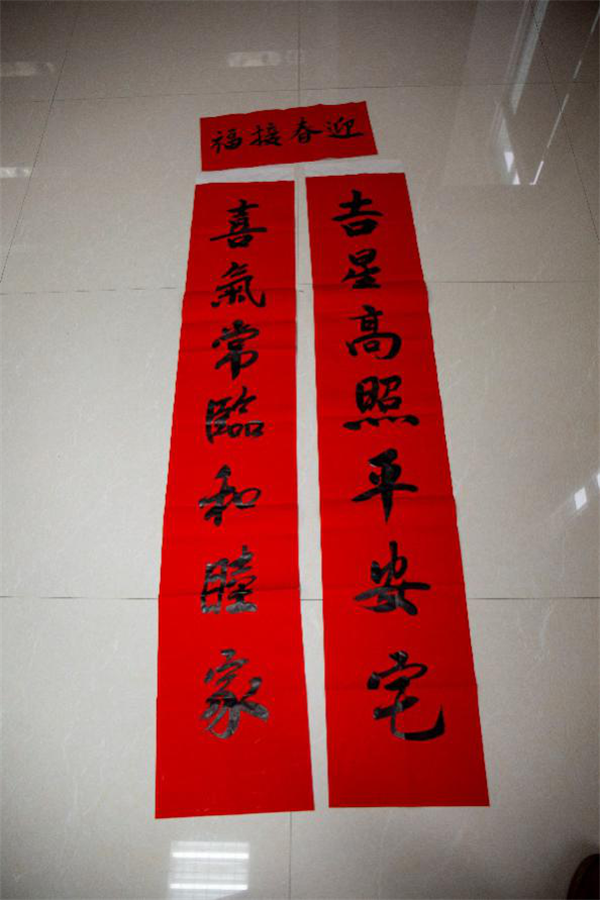 福接春迎
吉星高照平安宅
喜氣常臨和睦家